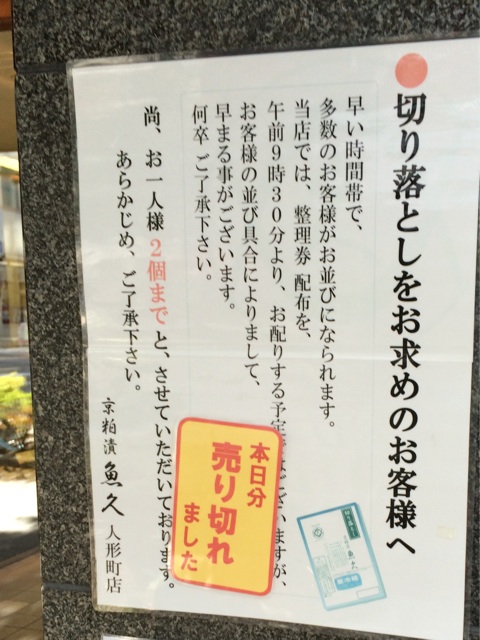 ●切り落としをお求めのお客様へ
早い時間帯で、
多数のお客様がお並びになられます。
当店では、整理券 配布を、
午前9時30分より、お配りする予定ではございますが、
お客様の並び具合によりまして、
早まる事がございます。
何卒 ご了承下さい。
尚、お一人様 2個まで と、させていただいております。
あらかじめ、ご了承下さい。
京粕漬 魚久 人形町店
本日分
売り切れ
ました